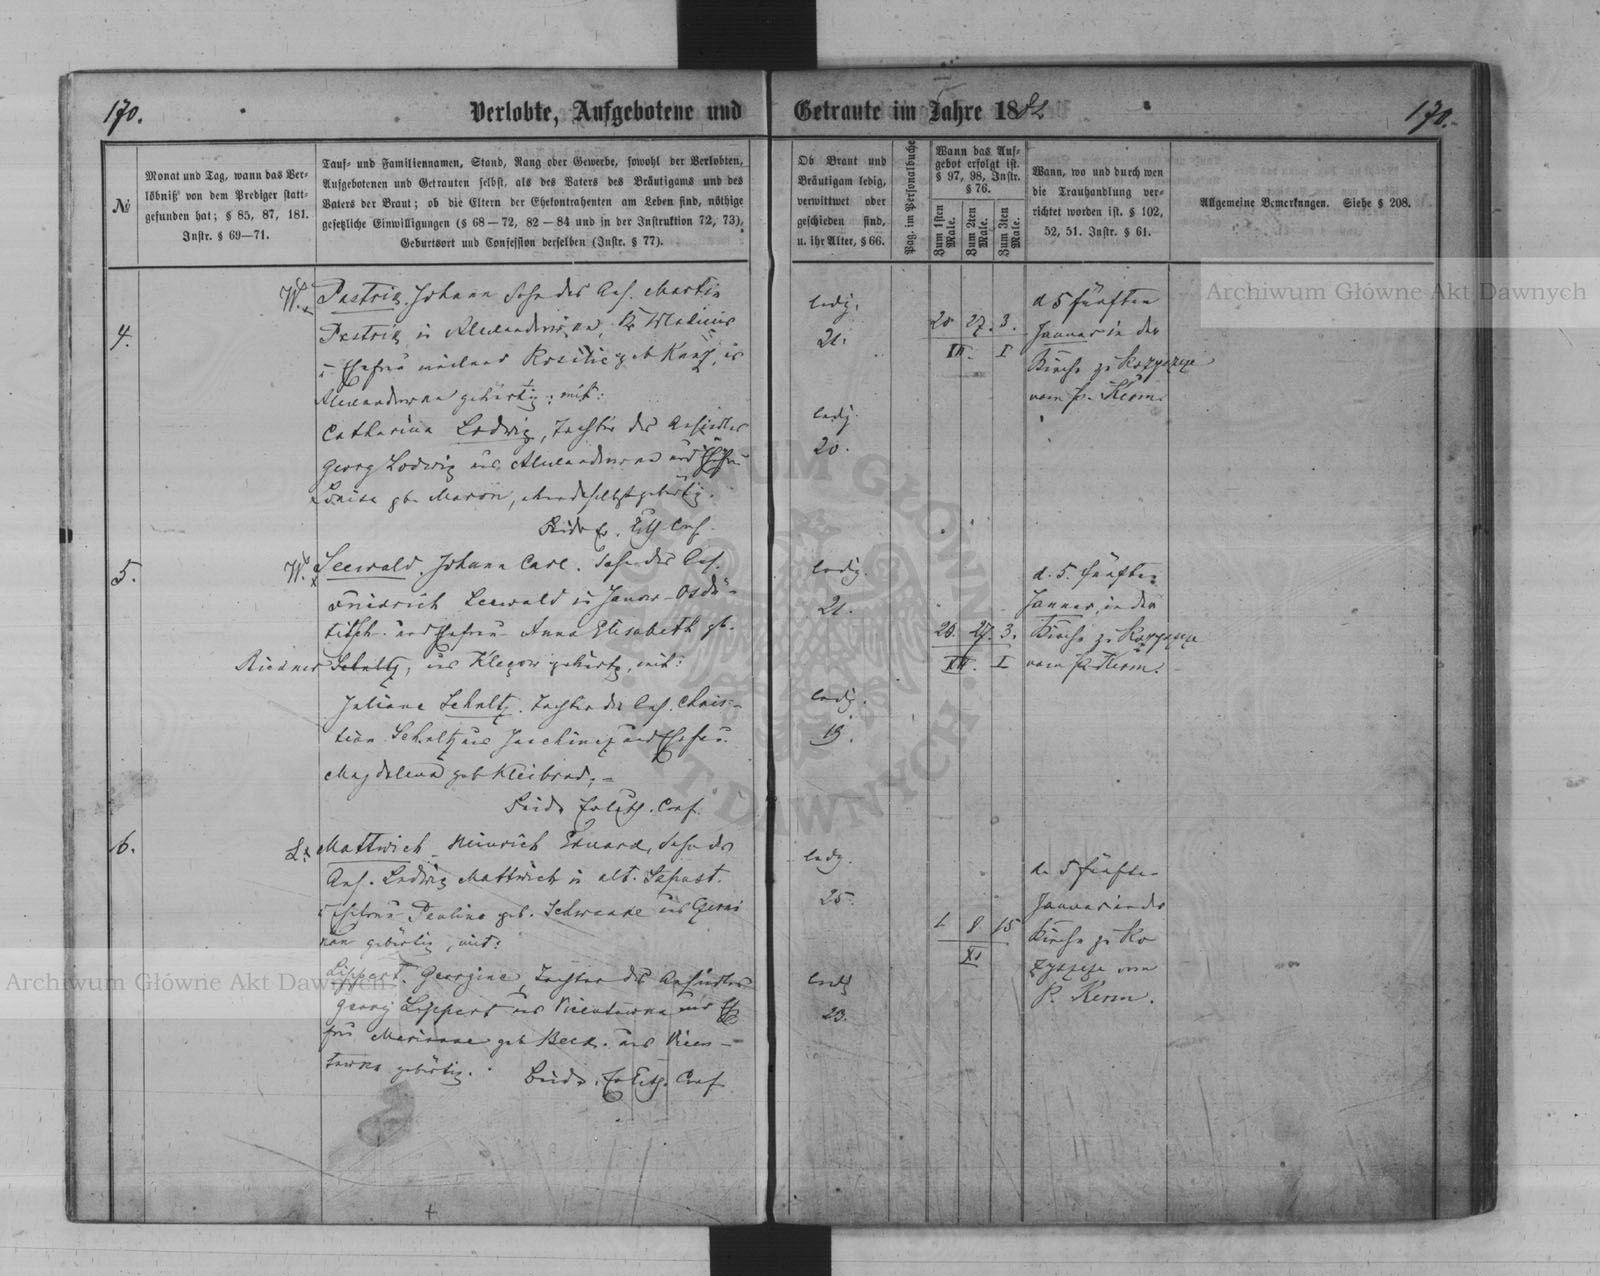 170.
Verlobte, Aufgebotene und Getraute im Jahre 1882
170.
№
Monat und Tag, wann das Ver-
löbniß von dem Prediger statt-
gefunden hat; § 85, 87, 181.
Instr. § 69—71.
Tauf- und Familiennamen, Stand, Rang oder Gewerbe, sowohl der Verlobten,
Aufgebotenen und Getrauten selbst, als des Vaters des Bräutigams und des
Vaters der Braut; ob die Eltern der Ehekontrahenten am Leben sind, nöthige
gesetzliche Einwilligungen (§ 68—72, 82—84 und in der Instruktion 72, 73),
Geburtsort und Confession derselben (Instr. § 77).
Ob Braut und
Bräutigam ledig,
verwittwet oder
geschieden sind,
u. ihr Alter, § 66.
Pag. im Personalbuche
Wann das Auf-
gebot erfolgt ist.
§ 97, 98, Instr.
§ 76.
Zum 1sten Male.
Zum 2ten Male.
Zum 3ten Male.
Wann, wo und durch wen
die Trauhandlung ver-
richtet worden ist. § 102,
52, 51. Instr. § 61.
Allgemeine Bemerkungen. Siehe § 208.
4.
W.
Pastrig, Johann Sohn des Ans. Martin
Pastrig in Alexandrowka,
u. Ehefrau weiland Rosalie geb Kunz, in
Alexandrowka gebürtig; mit:
Catharina Ludwig, Tochter des Ansiedlers
Georg Ludwig aus Alexandrowka und Ehefrau
Louisa geb. Maron, daselbst gebürtig.
Beide Ev. Luth Conf.
ledig.
21.
ledig.
20.
20 27. 3.
XII. I
d. 5 fünften
Januar in der
Kirche zu Rozyszcze
vom P. Kerm.
5.
W.
Seewald, Johann Carl. Sohn des Ans.
Friedrich Seewald in Janow-Osdü-
titsch und Ehefrau Anna Elisabeth gb.
Riedner Schultz, aus Kleczow gebürtig, mit:
Juliane Schultz, Tochter des Ans. Chris-
tian Schultz aus und Ehefrau
Magdalena geb Kleibrad,
Beide Ev Luth. Conf.
ledig.
21.
ledig.
19.
20. 27. 3.
XII. I
d. 5. fünften
Januar, in der
Kirche zu Rozyszcze
vom P. Kerm.
6.
L.
Mattwich Heinrich Eduard, Sohn des
Ans. Ludwig Mattwich in alt.
u Ehefrau Pauline geb. Schwanke aus
gebürtig, mit:
Lippert. Georgine, Tochter des Ansiedlers
Georg Lippert aus Vicentowka und Ehe
frau Marianne geb Beck. aus Vicen-
towka gebürtig.
Beide. Ev Luth. Conf.
ledig.
25
ledig
23.
1 8 15
XI
d. 5 fünften
Januar in der
Kirche zu Ro
zyszcze vom
P. Kerm.
Archiwum Główne Akt Dawnych
Archiwum Główne Akt Dawnych
ARCHIWUM GŁÓWNE AKT DAWNYCH